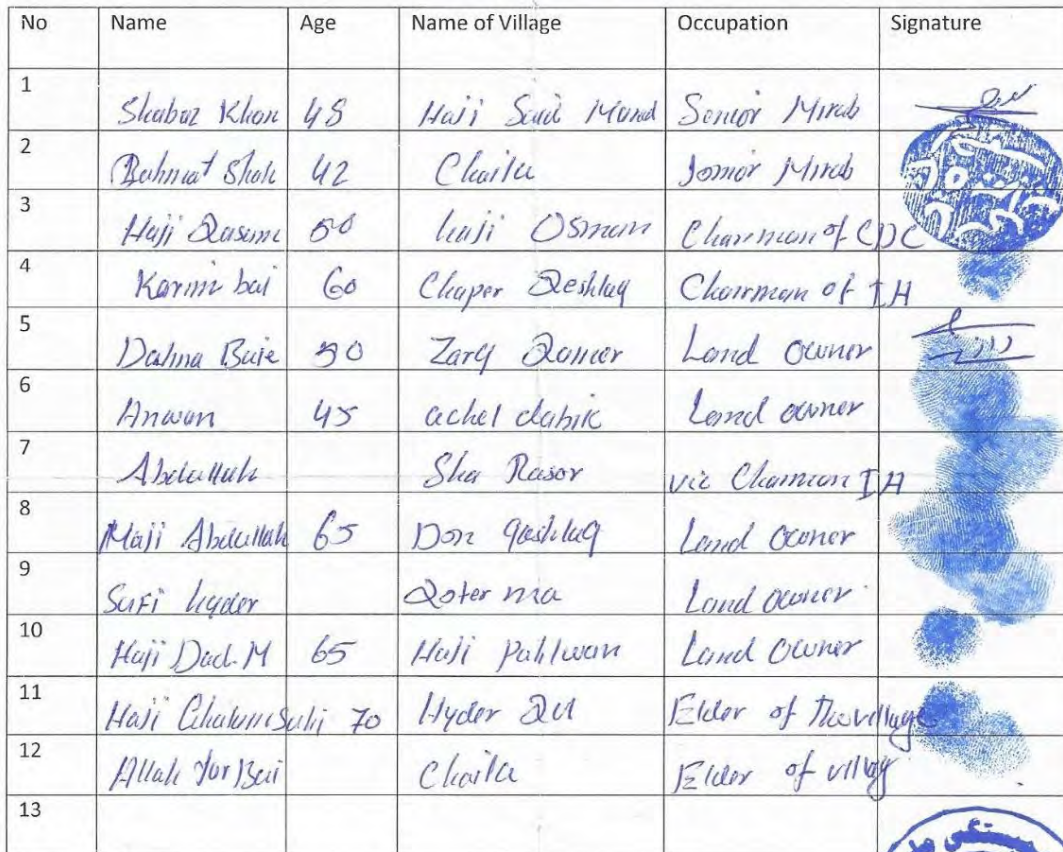 No Name Age Name of Village Occupation Signature
1 Shabaz Khan 48 Haji Said Murad Senior Mirab
2 Rahmat Shah 42 Chaila Jonior Mirab
3 Haji Qasim 50 haji Osman Chairman of CDC
4 Karim bai 60 Chaper Qeshlaq Chairman of IH
5 Baie 50 Zarq Land owner
6 Anwan 45 Land owner
7 Abdullah Sha Rasor vic Chairman IH
8 Haji Abdullah 65 Don qeshlaq Land owner
9 Sufi hyder Qoter ma Land owner
10 Haji Dad. M 65 Haji Pahlwan Land owner
11 Haji 70 Hyder Qul Elder of the village
12 Allah Yar Bai Chaila Elder of villag
13